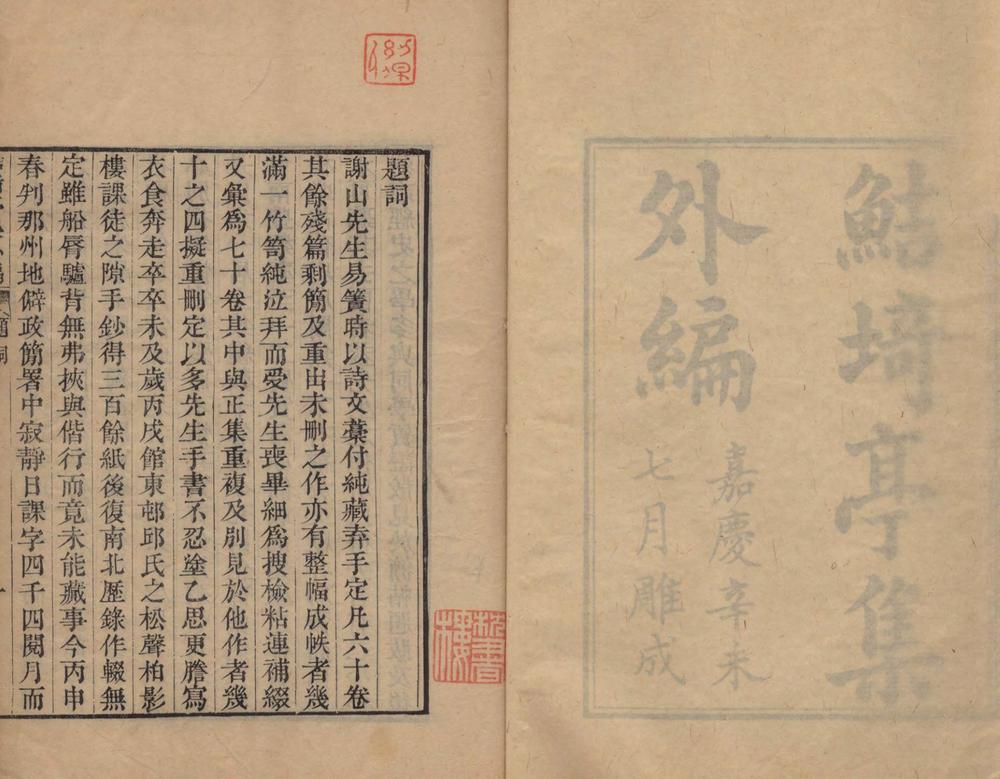 鮚埼亭集
外編
嘉慶辛未
七月雕成
題詞
謝山先生易簀時以詩文藁付純藏弆手定凡六十卷
其餘殘篇剩簡及重出未刪之作亦有整幅成帙者幾
滿一竹笥純泣拜而受先生喪畢細爲搜檢粘連補綴
又彙爲七十卷其中與正集重複及別見於他作者幾
十之四擬重刪定以多先生手書不忍塗乙思更謄寫
衣食奔走卒卒未及歲丙戌館東邨邱氏之松聲柏影
樓課徒之隙手鈔得三百餘紙後復南北歷錄作輟無
定雖船脣驢背無弗挾與偕行而竟未能蕆事今丙申
春判那州地僻政簡署中寂靜日課字四千四閱月而
題詞